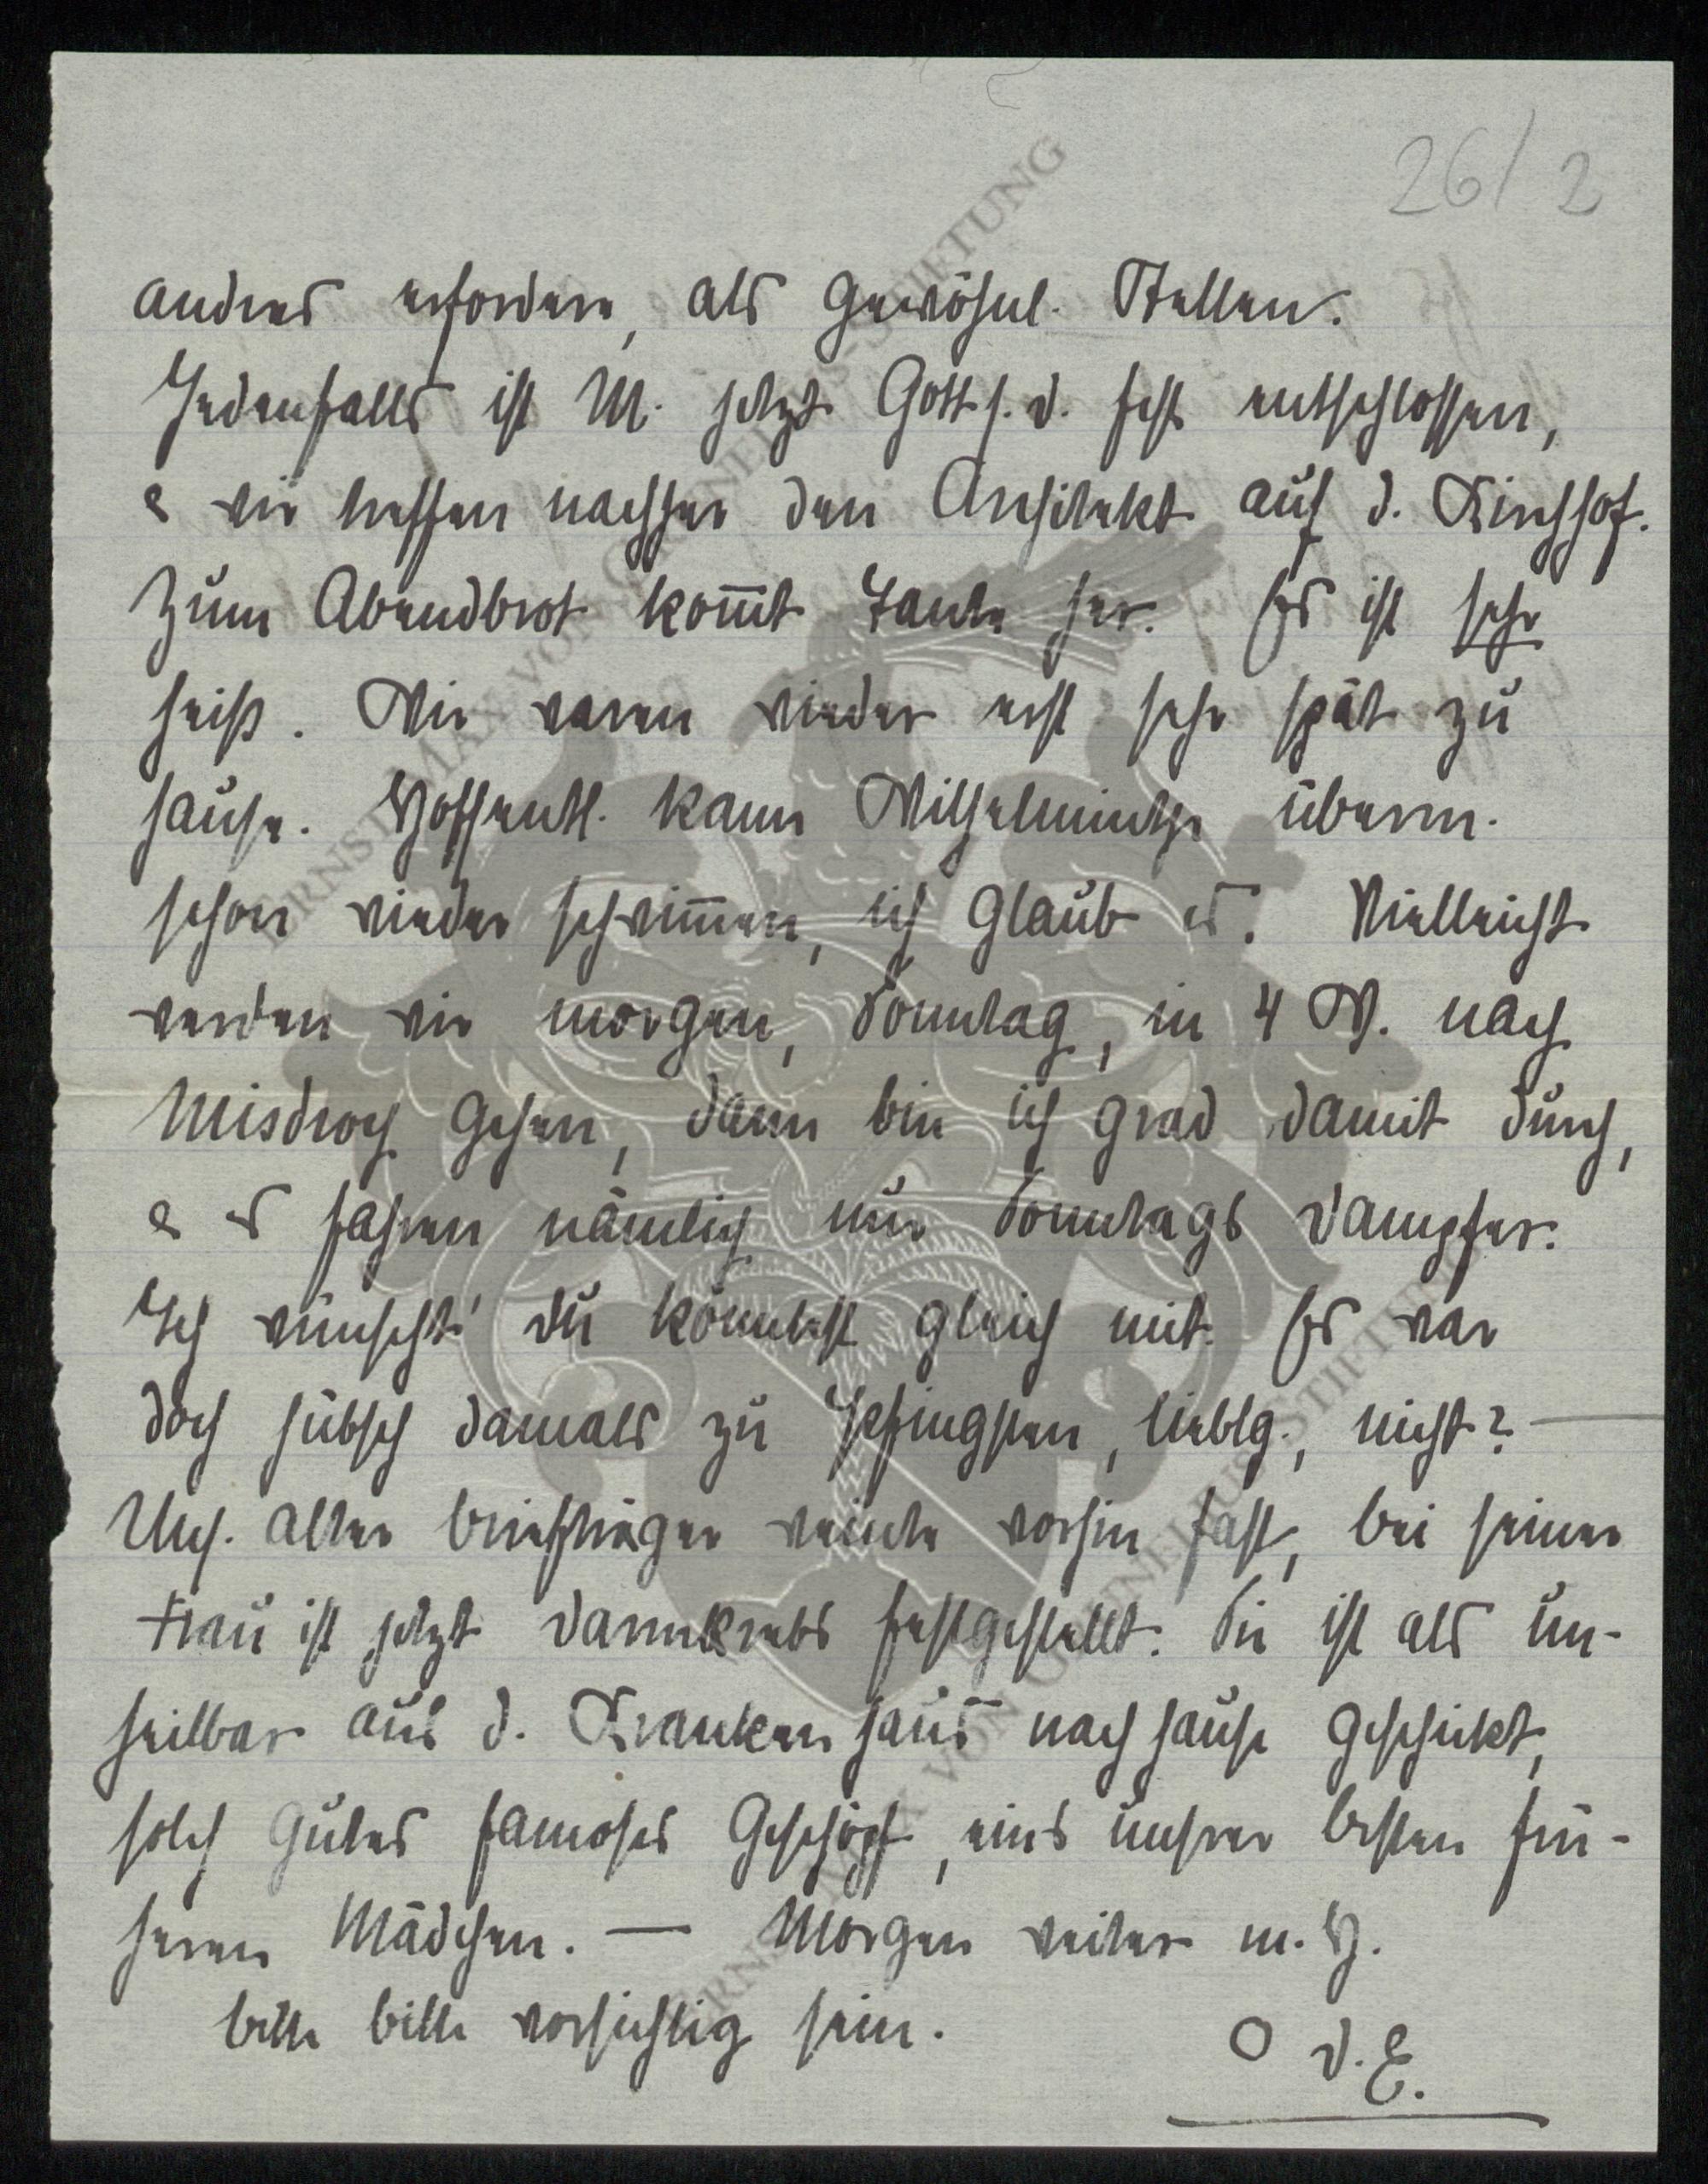 26/2
andres erfordere, als gewöhnl. Stellen.
Jedenfalls ist M. jetzt Gott s. d. fest entschlossen,
& wir treffen nachher den Architekt auf d. Kirchhof.
Zum Abendbrot kom̅t Tante her. Es ist sehr
heiß. Wir waren wieder erst sehr spät zu
hause. Hoffentl. kann Wilhelmintje überm.
schon wieder schwim̅en, ich glaub es. Vielleicht
werden wir morgen, Sonntag, in 4 W. nach
Misdroy gehen, dann bin ich grad damit durch,
& es fahren nämlich nur Sonntags Dampfer.
Ich wünscht' du könntest gleich mit. Es war
doch hübsch damals zu Pfingsten, lieblg., nicht? —
Uns. alter briefträger weinte vorhin fast, bei seiner
Frau ist jetzt Darmkrebs festgestellt. Sie ist als un-
heilbar aus d. Krankenhaus nach hause geschickt,
solch gutes famoses Geschöpf, eins unsrer besten frü-
heren Mädchen. — Morgen weiter m. H.
bitte bitte vorsichtig sein.
O d. E.
ERNST MAX VON GRUNELIUS-STIFTUNG
ERNST MAX VON GRUNELIUS-STIFTUNG